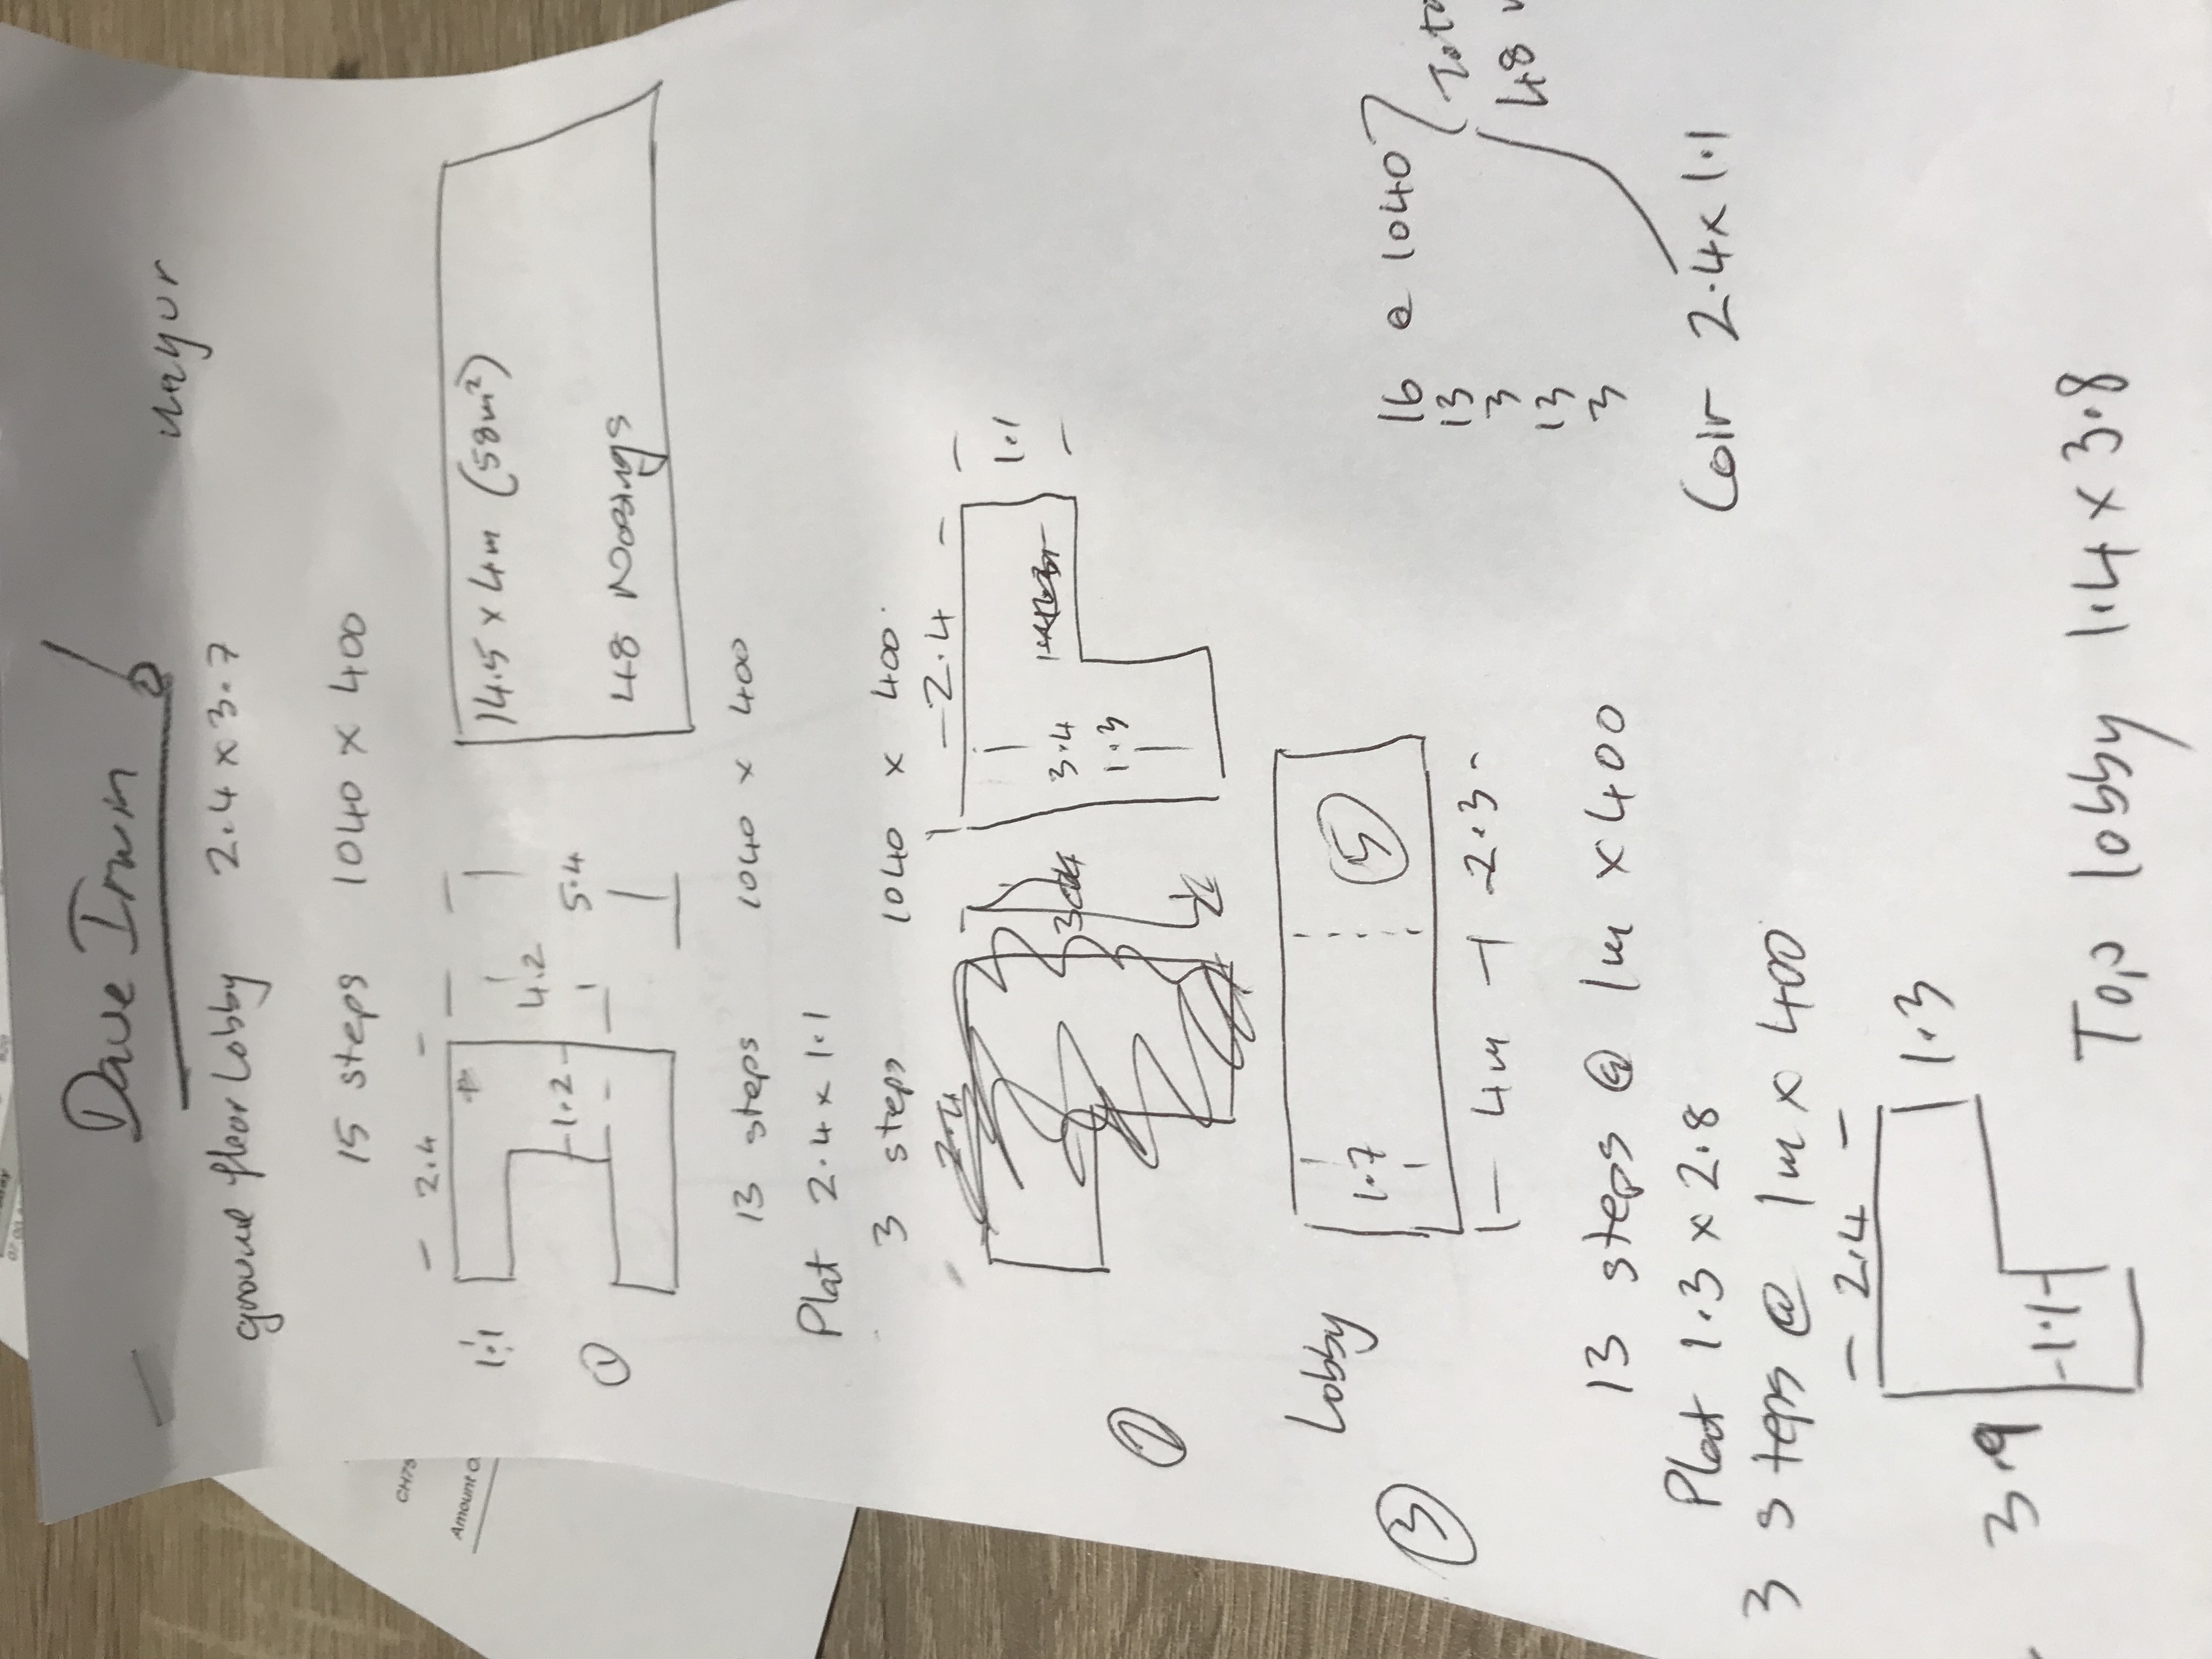 Dave Irwin
ground floor Lobby 2.4 x 3.7
15 steps 1040 x 400
14.5 x 4m (58m²)
48 Nosings
- 2.4 -
1.1
4.2
5.4
-1.2-
①
13 steps 1040 x 400
Plat 2.4 x 1.1
3 steps 1040 x 400
- 2.4 -
1.1
3.4
1.3
②
Lobby
1.7
⑤
|- 4m -| 2.3 -
③
16 @ 1040
13
3
13
3
48
Coir 2.4 x 1.1
13 steps @ 1m x 400
Plat 1.3 x 2.8
3 steps @ 1m x 400
- 2.4 -
1.3
3.9
-1.1-
Top lobby 1.4 x 3.8
CH75
Amount